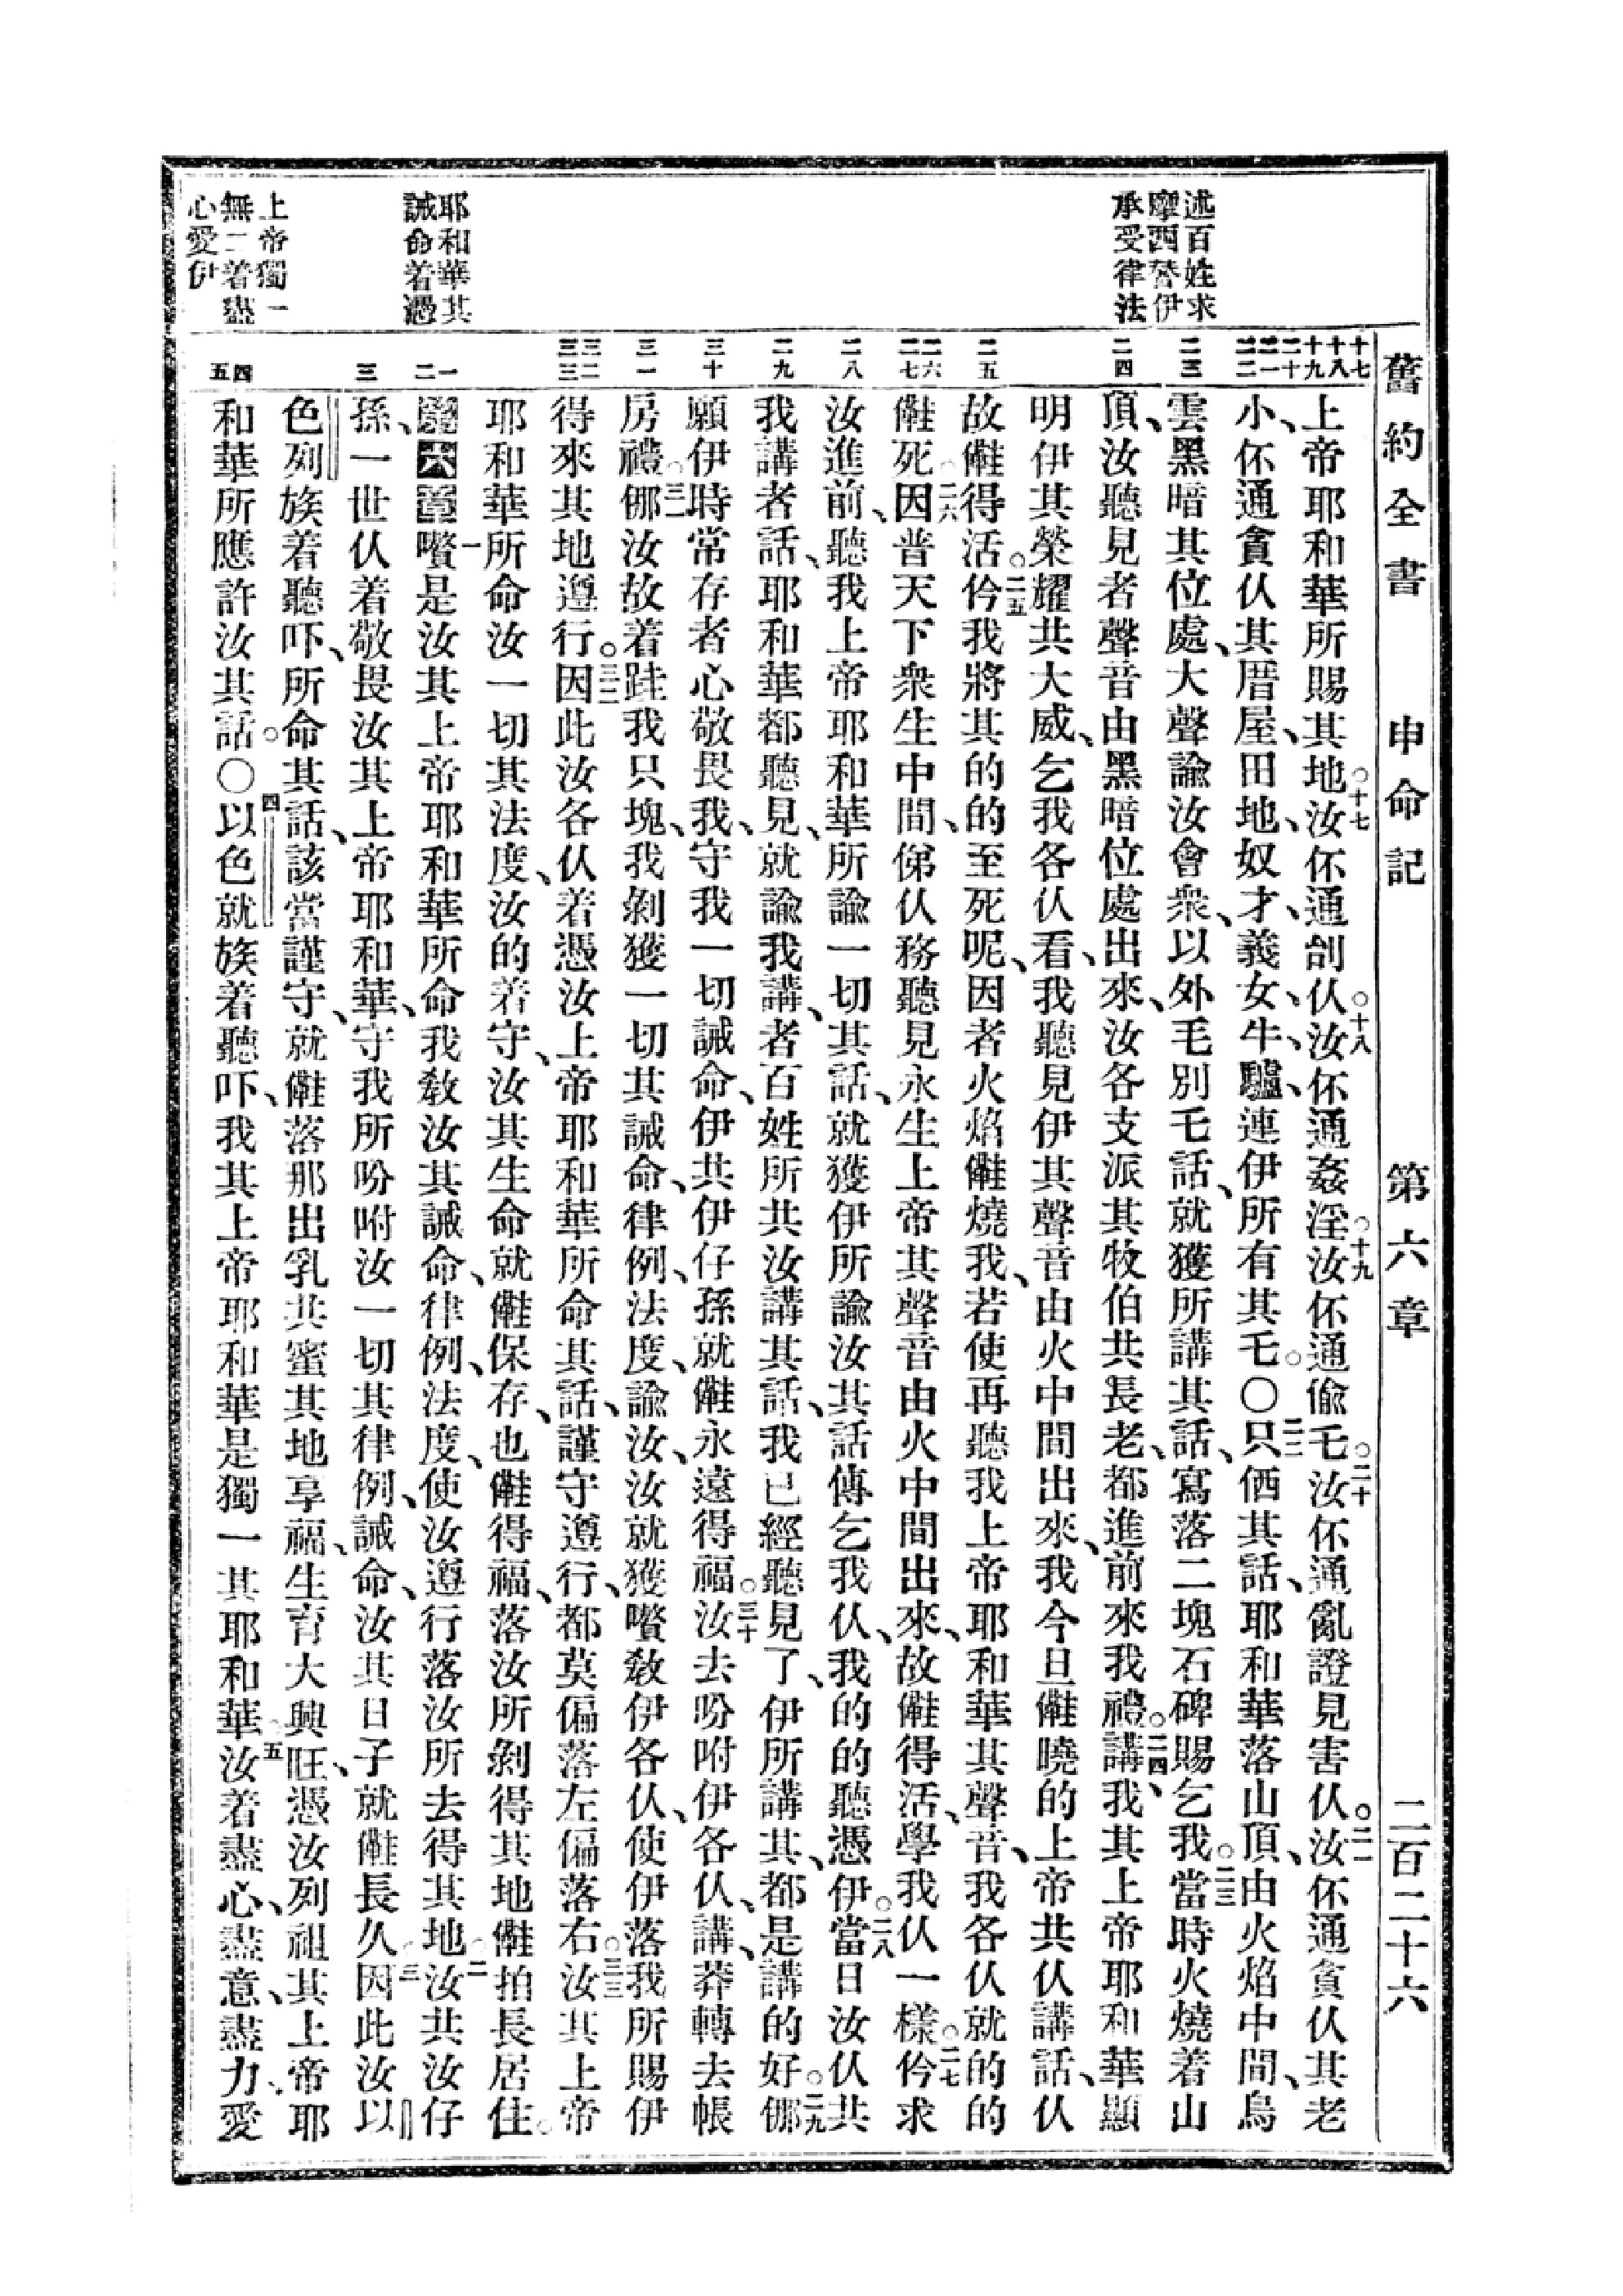 舊約全書 申命記 第六章 二百二十六
述百姓求
摩西替伊
承受律法
耶和華其
誡命着憑
上帝獨一
無二着盡
心愛伊
十七 十八 十九 二十 二一 二二 二三 二四 二五 二六 二七 二八 二九 三十 三一 三二 三三 一 二 三 四 五
上帝耶和華所賜其地○十七汝伓通刣仈○十八汝伓通姦淫○十九汝伓通偷乇○二十汝伓通亂證見害仈○二一汝伓通貪仈其老
小、伓通貪仈其厝屋、田地、奴才、義女、牛、驢、連伊所有其乇。〇二二只㑚其話、耶和華落山頂、由火焰中間、烏
雲黑暗其位處、大聲諭汝會衆、以外毛別乇話、就獲所講其話、寫落二塊石碑賜乞我○二三當時火燒着山
頂、汝聽見者聲音由黑暗位處出來、汝各支派其牧伯共長老、都進前來我禮○二四講、我其上帝耶和華顯
明伊其榮耀共大威、乞我各仈看、我聽見伊其聲音由火中間出來、我今旦㒕曉的上帝共仈講話、仈
故㒕得活。二五伶我將其的的至死呢、因者火焰㒕燒我、若使再聽我上帝耶和華其聲音、我各仈就的的
㒕死○二六因普天下衆生中間、俤仈務聽見永生上帝其聲音由火中間出來、故㒕得活、學我仈一樣○二七伶求
汝進前、聽我上帝耶和華所諭一切其話、就獲伊所諭汝其話傳乞我仈、我的的聽憑伊○二八當日汝仈共
我講者話、耶和華都聽見、就諭我講、者百姓所共汝講其話、我已經聽見了、伊所講其、都是講的好○二九㑚
願伊時常存者心敬畏我、守我一切誡命、伊共伊仔孫就㒕永遠得福○三十汝去吩咐伊各仈講、莽轉去帳
房禮○三一㑚汝故着跬我只塊、我剝獲一切其誡命、律例、法度、諭汝、汝就獲嚽敎伊各仈、使伊落我所賜伊
得來其地遵行○三二因此汝各仈着憑汝上帝耶和華所命其話、謹守遵行、都莫偏落左偏落右○三三汝其上帝
耶和華所命汝一切其法度、汝的着守、汝其生命就㒕保存、也㒕得福、落汝所剝得其地㒕拍長居住。
第六章一嚽是汝其上帝耶和華所命我敎汝其誡命、律例、法度、使汝遵行落汝所去得其地○二汝共汝仔
孫、一世仈着敬畏汝其上帝耶和華、守我所吩咐汝一切其律例、誡命、汝其日子就㒕長久○三因此汝以
色列族着聽吓、所命其話、該當謹守、就㒕落那出乳共蜜其地享福、生育大興旺、憑汝列祖其上帝耶
和華所應許汝其話。〇四以色就族着聽吓、我其上帝耶和華是獨一其耶和華○五汝着盡心、盡意、盡力、愛